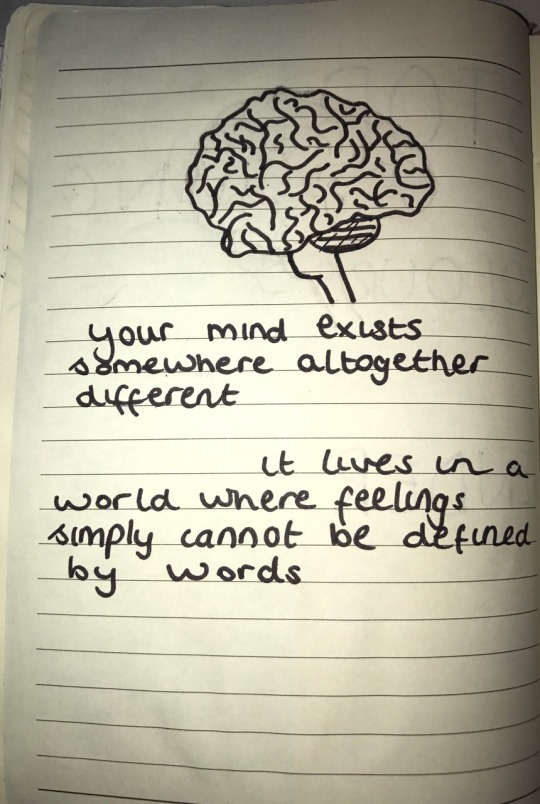 your mind exists
somewhere altogether
different
it lives in a
world where feelings
simply cannot be defined
by words